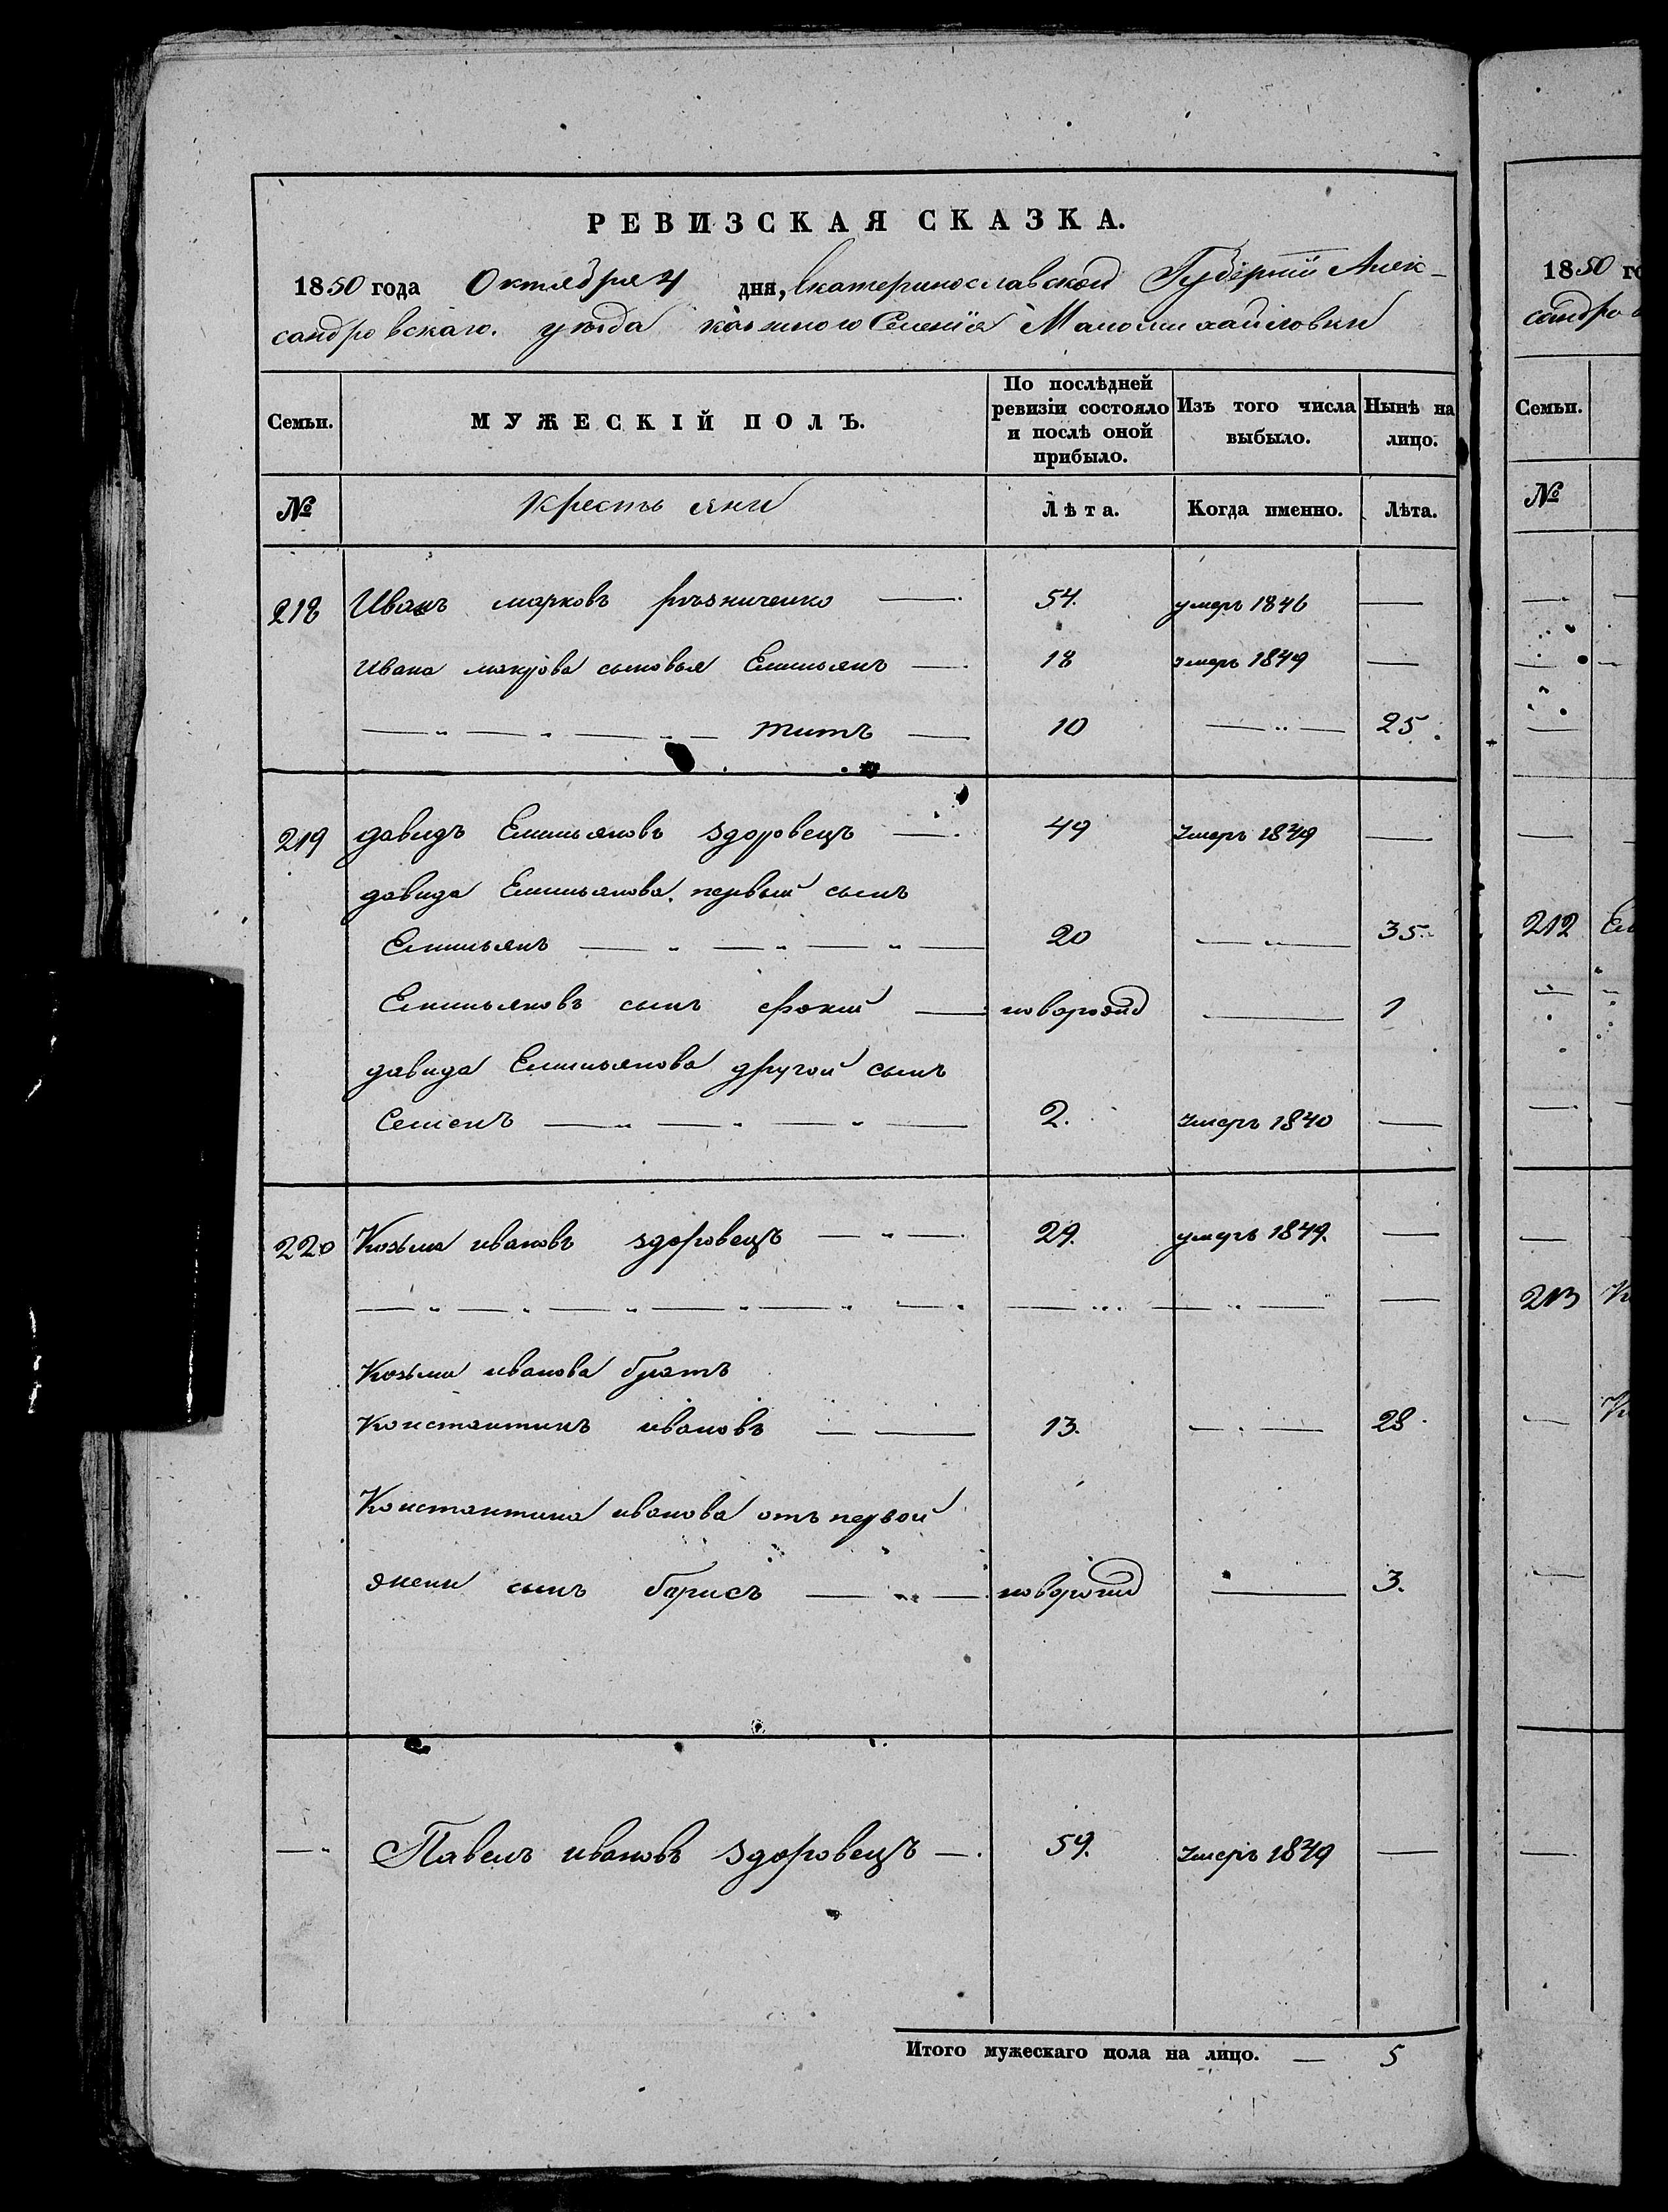 РЕВИЗСКАЯ СКАЗКА.
1850 года Октября 4 дня, Екатеринославской Губернiи Алек-
сандровскаго. уѣзда казенного Селенiя Маломихайловки
Семьи. МУЖЕСКIЙ ПОЛЪ. По послѣдней ревизiи состояло и послѣ оной прибыло. Изъ того числа выбыло. Нынѣ на лицо.
№ Крестьяни Лѣта. Когда именно. Лѣта.
218 Иванъ марковъ рѣзниченко — 54. умеръ 1846 —
Ивана маркова сыновья Емильянъ — 18 умеръ 1849 —
— „ — „ — „ — титъ — 10 — „ — 25.
219 давидъ Емильяновъ здоровецъ — 49 умеръ 1849 —
давида Емильянова первый сынъ
Емильянъ — „ — „ — „ — 20 — „ — 35.
Емильяновъ сынъ фокий — новорожд — 1
давида Емильянова другой сынъ
Семенъ — „ — „ — „ — 2. умеръ 1840 —
220 Козьма ивановъ здоровецъ — „ — 29. умеръ 1849. —
— „ — „ — „ — „ — „ — „ — „ — „ — —
Козьми иванова братъ
Константинъ ивановъ — — 13. — „ — 28
Константина иванова отъ первой
жени сынъ борисъ — „ — новорожд — 3.
— „ Павелъ ивановъ здоровецъ — 59. умеръ 1849 —
Итого мужескаго пола на лицо. — 5
1850 го
сандров
Семьи.
№
212 Ем
213 К
К